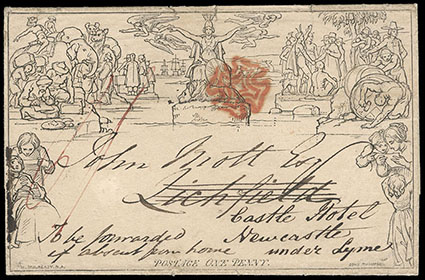 John Mott Esq
Lichfield
Castle Hotel
To be forwarded Newcastle
if absent from home under Lyme
W. MULREADY. R.A.
POSTAGE ONE PENNY.
JOHN THOMPSON